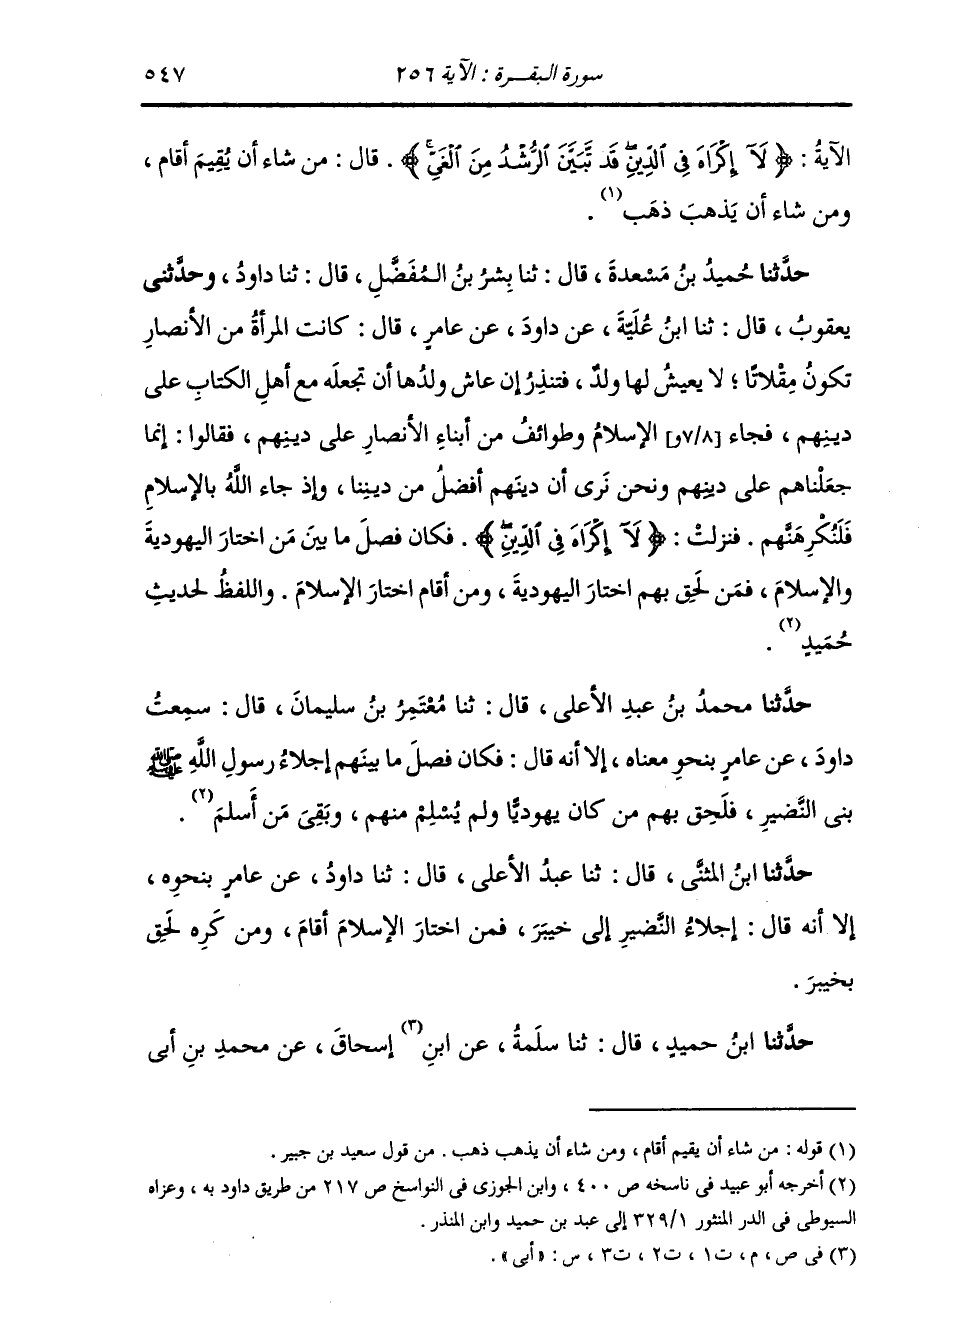 سورة البقرة : الآية ٢٥٦ ٥٤٧
الآيةُ : ﴿ لَآ إِكْرَاهَ فِى ٱلدِّينِۖ قَد تَّبَيَّنَ ٱلرُّشْدُ مِنَ ٱلْغَىِّۚ ﴾ . قال : من شاء أن يُقِيمَ أقام ،
ومن شاء أن يَذهبَ ذهَب(١) .
حدَّثنا حُميدُ بنُ مَسْعدةَ ، قال : ثنا بِشرُ بنُ المُفَضَّلِ ، قال : ثنا داودُ ، وحدَّثنى
يعقوبُ ، قال : ثنا ابنُ عُلَيّةَ ، عن داودَ ، عن عامرٍ ، قال : كانت المرأةُ من الأنصارِ
تكونُ مِقْلاتًا ؛ لا يعيشُ لها ولدٌ ، فتنذِرُ إن عاش ولدُها أن تجعلَه مع أهلِ الكتابِ على
دينِهم ، فجاء [٧/٨و] الإسلامُ وطوائفُ من أبناءِ الأنصارِ على دينِهم ، فقالوا : إنما
جعَلْناهم على دينِهم ونحن نَرى أن دينَهم أفضلُ من دينِنا ، وإذ جاء اللَّهُ بالإسلامِ
فَلَنُكْرِهَنَّهم . فنزلتْ : ﴿ لَآ إِكْرَاهَ فِى ٱلدِّينِۖ ﴾ . فكان فصلَ ما بينَ مَن اختارَ اليهوديةَ
والإسلامَ ، فمَن لَحِق بهم اختارَ اليهوديةَ ، ومن أقام اختارَ الإسلامَ . واللفظُ لحديثِ
حُمَيدٍ(٢) .
حدَّثنا محمدُ بنُ عبدِ الأعلى ، قال : ثنا مُعْتَمِرُ بنُ سليمانَ ، قال : سمِعتُ
داودَ ، عن عامرٍ بنحوِ معناه ، إلا أنه قال : فكان فصلَ ما بينَهم إجلاءُ رسولِ اللَّهِ ﷺ
بنى النَّضيرِ ، فلَحِق بهم من كان يهوديًّا ولم يُسْلِمْ منهم ، وبَقِىَ مَن أَسلمَ(٢) .
حدَّثنا ابنُ المثنَّى ، قال : ثنا عبدُ الأعلى ، قال : ثنا داودُ ، عن عامرٍ بنحوِه ،
إلا أنه قال : إجلاءُ النَّضيرِ إلى خيبَرَ ، فمن اختارَ الإسلامَ أقامَ ، ومن كَرِه لَحِق
بخيبرَ .
حدَّثنا ابنُ حميدٍ ، قال : ثنا سلَمةُ ، عن ابنِ(٣) إسحاقَ ، عن محمدِ بنِ أبى
(١) قوله : من شاء أن يقيم أقام ، ومن شاء أن يذهب ذهب . من قول سعيد بن جبير .
(٢) أخرجه أبو عبيد فى ناسخه ص ٤٠٠ ، وابن الجوزى فى النواسخ ص ٢١٧ من طريق داود به ، وعزاه
السيوطى فى الدر المنثور ٣٢٩/١ إلى عبد بن حميد وابن المنذر .
(٣) فى ص ، م ، ت١ ، ت٢ ، ت٣ ، س : «أبى» .